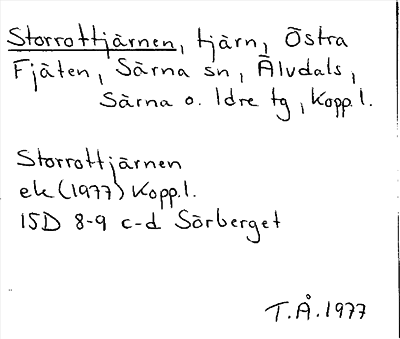 Storrottjärnen, tjärn, Östra
Fjäten, Särna sn, Älvdals,
Särna o. Idre tg, Kopp.l.
Storrottjärnen
ek (1977) Kopp.l.
15D 8-9 c-d Sörberget
T.Å.1977